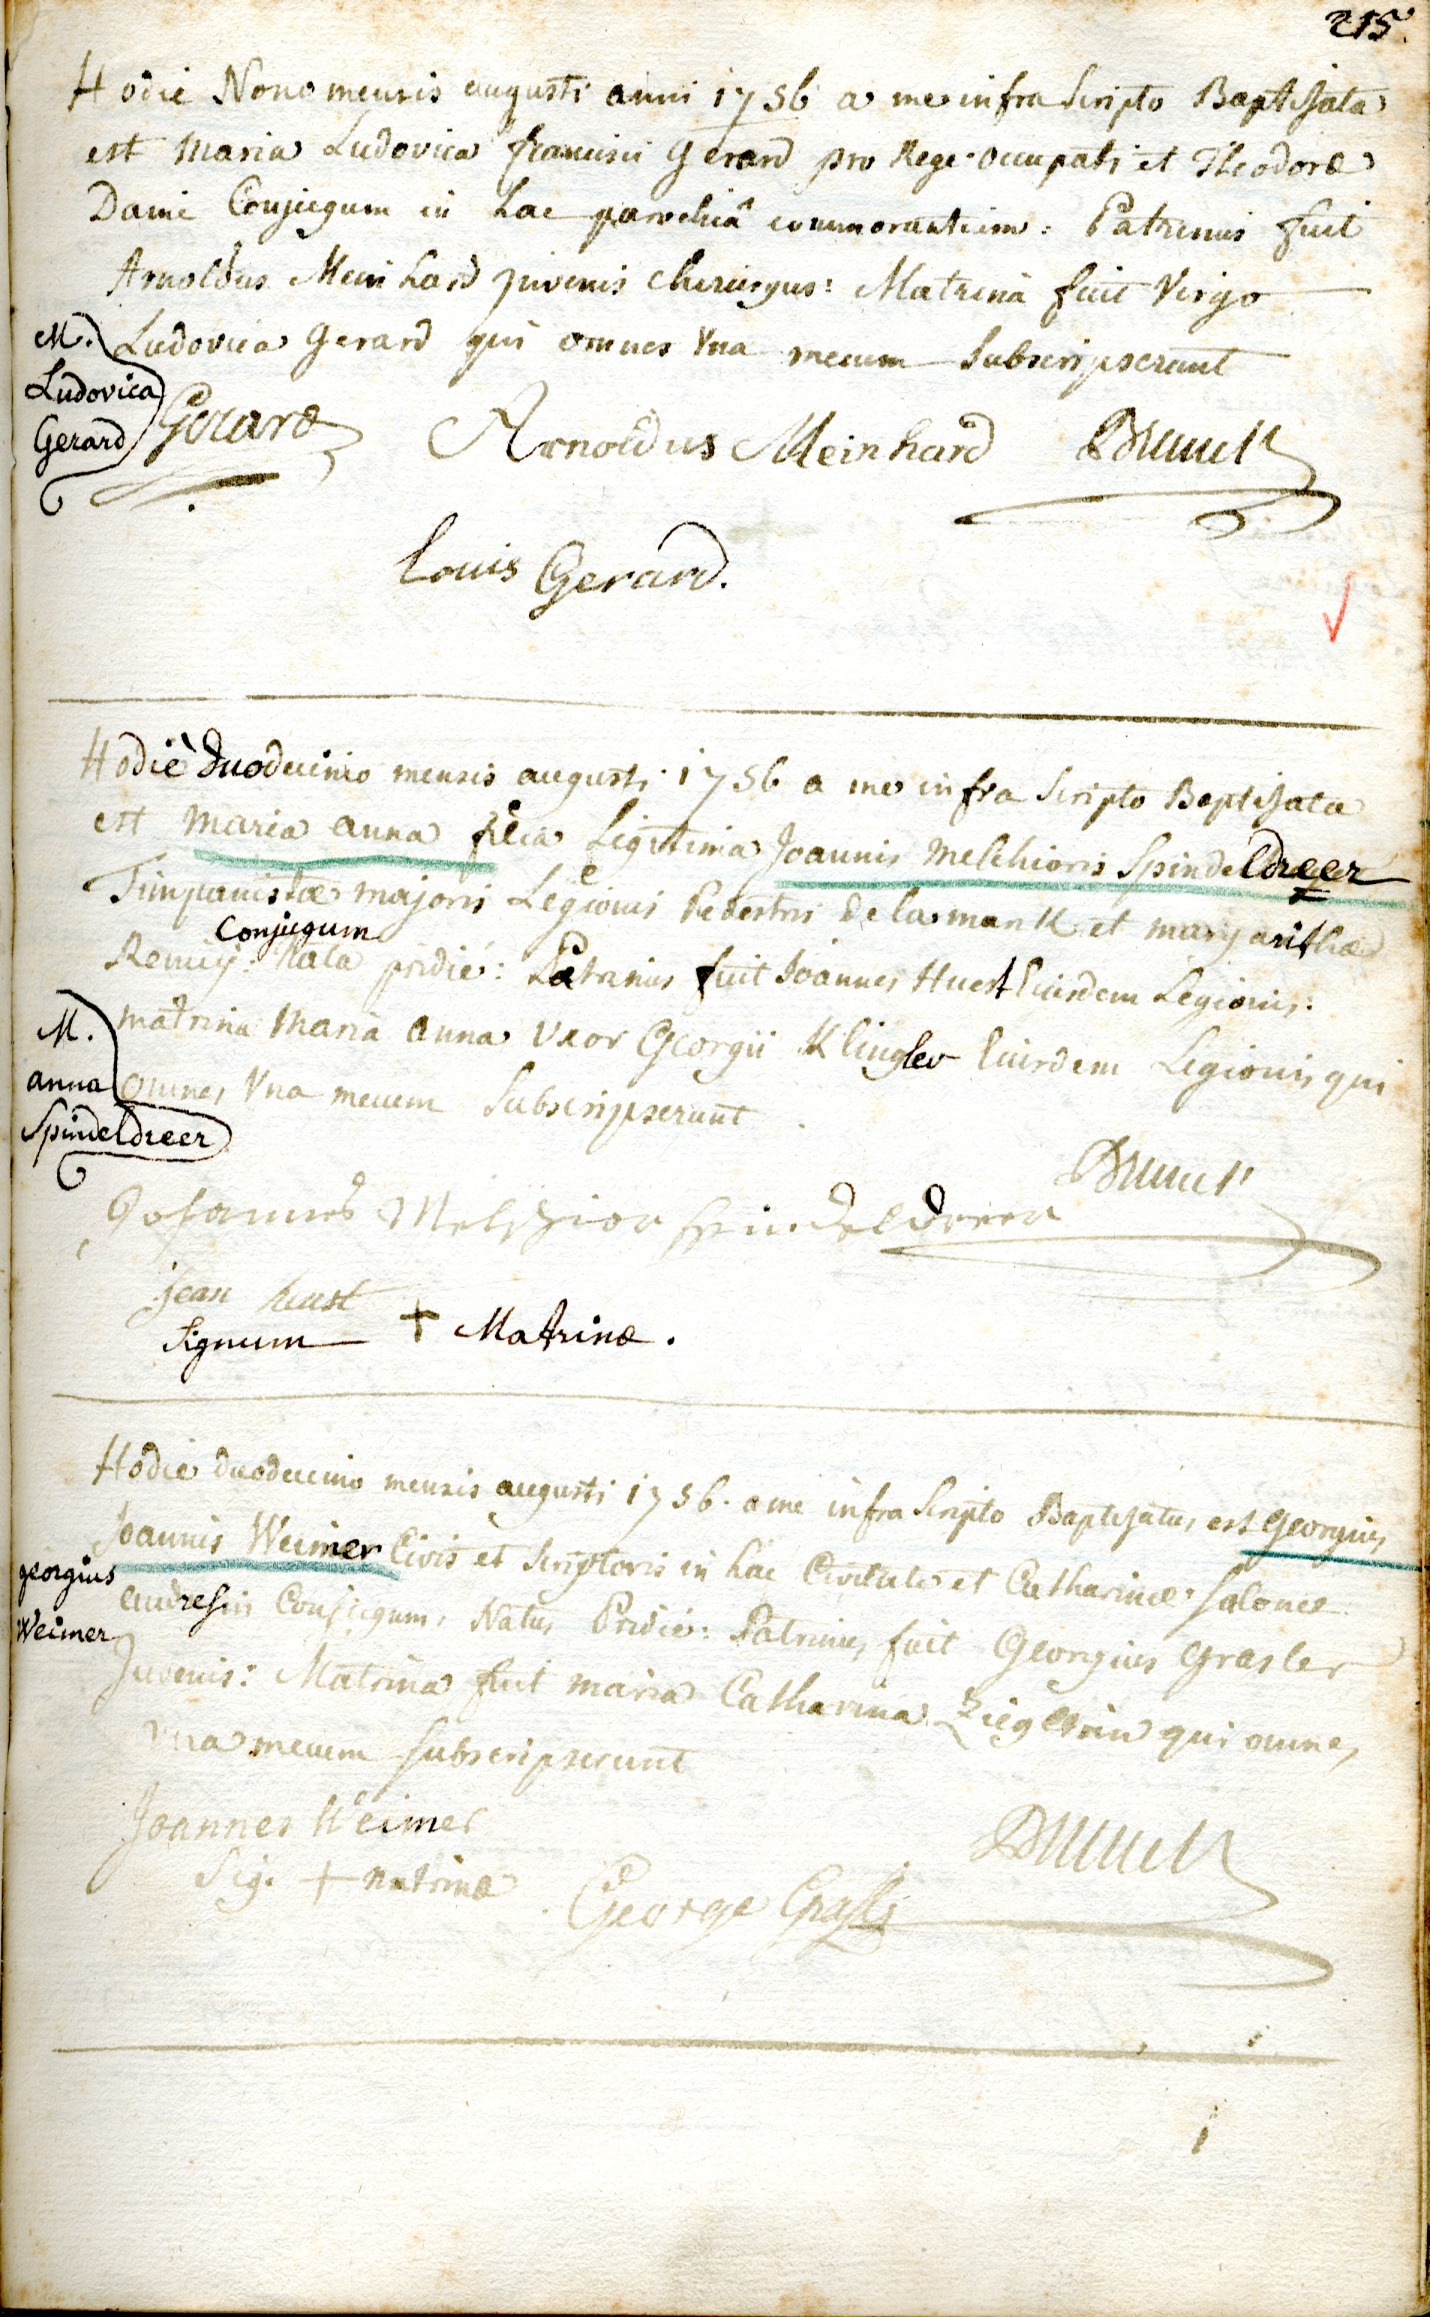 215.
Hodie Nono mensis augusti anni 1756 a me infra Scripto Baptisata
est Maria Ludovica francisci Gerard pro Rege occupati et Theodoræ
Danie Conjugum in hac parochiâ commorantium: Patrinus fuit
Arnoldus Meinhard juvenis chirurgus: Matrina fuit Virgo
Ludovica Gerard qui omnes Vna mecum Subscripserunt
M.
Ludovica
Gerard
Gerard Arnoldus Meinhard
Louis Gerard.
Hodie duodecimo mensis augusti 1756 a me infra Scripto Baptisata
est Maria anna filia Legitima Joannis Melchioris Spindeldreer
Timpanistæ majoris Legionis Pedestris de lamank et margarithæ
Conjugum
Remiij: Nata pridie: Patrinus fuit Joannes Huest Eiusdem Legionis:
matrina Maria Anna Vxor Georgii Klingler Eiusdem Legionis qui
omnes Vna mecum Subscripserunt
M.
anna
Spindeldreer
Johannes Melchior Spindeldreer
jean huest
Signum + Matrinæ.
Hodie duodecimo mensis augusti 1756. a me infra Scripto Baptisatus est Georgius
Joannis Weimer Civis et Scriptoris in hac Civitate et Catharinæ Salome
andresin Conjugum, Natus Pridie: Patrinus fuit Georgius Grasler
Juvenis: Matrina fuit maria Catharina Zieglerin qui omnes
vna mecum subscripserunt
georgius
Weimer
Joannes Weimer
Sig. + matrinæ George